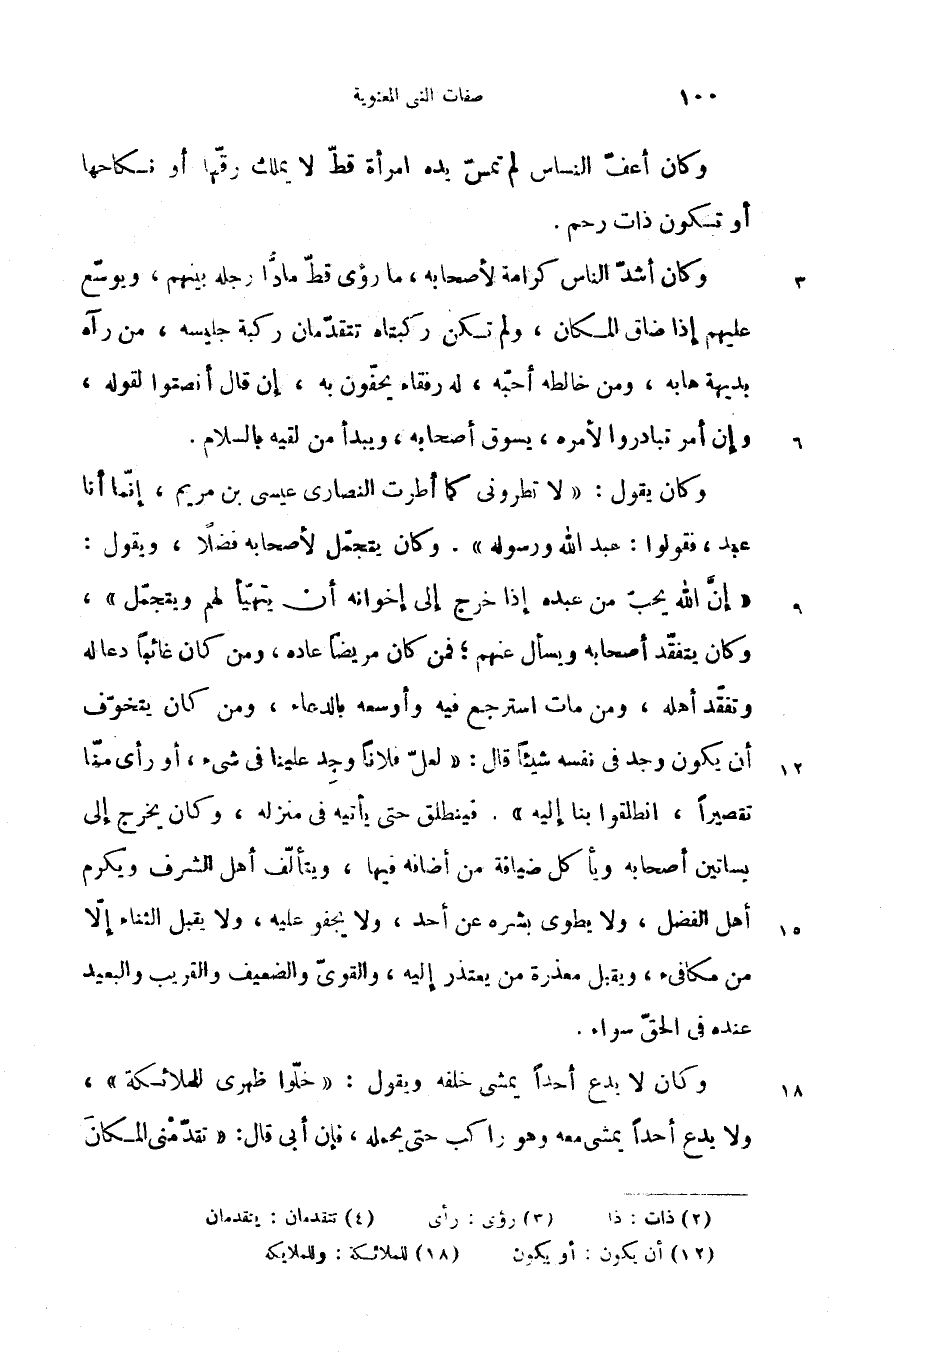 ١٠٠ صفات النبى المعنوية
وكان أعفّ النـاس لم تمسّ يده امرأة قطّ لا يملك رقّها أو نـكاحها
أو تـكون ذات رحم .
٣ وكان أشدّ الناس كرامة لأصحابه ، ما رؤى قطّ مادًّا رجله بينهم ، ويوسّع
عليهم إذا ضاق المـكان ، ولم تـكن ركبتاه تتقدّمان ركبة جليسه ، من رآه
بديهة هابه ، ومن خالطه أحبّه ، له رفقاء يحفّون به ، إن قال أنصتوا لقوله ،
٦ وإن أمر تبادروا لأمره ، يسوق أصحابه ، ويبدأ من لقيه بالسلام .
وكان يقول : « لا تطرونى كما أطرت النصارى عيسى بن مريم ، إنّما أنا
عبد ، فقولوا : عبد الله ورسوله » . وكان يتجمّل لأصحابه فضلًا ، ويقول :
٩ « إنَّ الله يحبّ من عبده إذا خرج إلى إخوانه أن يتهيّأ لهم ويتجمّل » ،
وكان يتفقّد أصحابه ويسأل عنهم ؛ فمن كان مريضاً عاده ، ومن كان غائباً دعا له
وتفقّد أهله ، ومن مات استرجع فيه وأوسعه بالدعاء ، ومن كان يتخوّف
١٢ أن يكون وجد فى نفسه شيئاً قال : « لعلّ فلاناً وجِد علينا فى شىء ، أو رأى منّا
تقصيراً ، انطلقوا بنا إليه » . فينطلق حتى يأتيه فى منزله ، وكان يخرج إلى
بساتين أصحابه ويأكل ضيافة من أضافه فيها ، ويتألّف أهل الشرف ويكرم
١٥ أهل الفضل ، ولا يطوى بشره عن أحد ، ولا يجفو عليه ، ولا يقبل الثناء إلّا
من مكافىء ، ويقبل معذرة من يعتذر إليه ، والقوىّ والضعيف والقريب والبعيد
عنده فى الحقّ سواء .
١٨ وكان لا يدع أحداً يمشى خلفه ويقول : « خلّوا ظهرى للملائـكة » ،
ولا يدع أحداً يمشى معه وهو راكب حتى يحمله ، فإن أبى قال: « تقدّمْنى المـكانَ
(٢) ذات : ذا (٣) رؤى : رأى (٤) تتقدمان : يتقدمان
(١٢) أن يكون : أو يكون (١٨) للملائـكة : وللملايكه